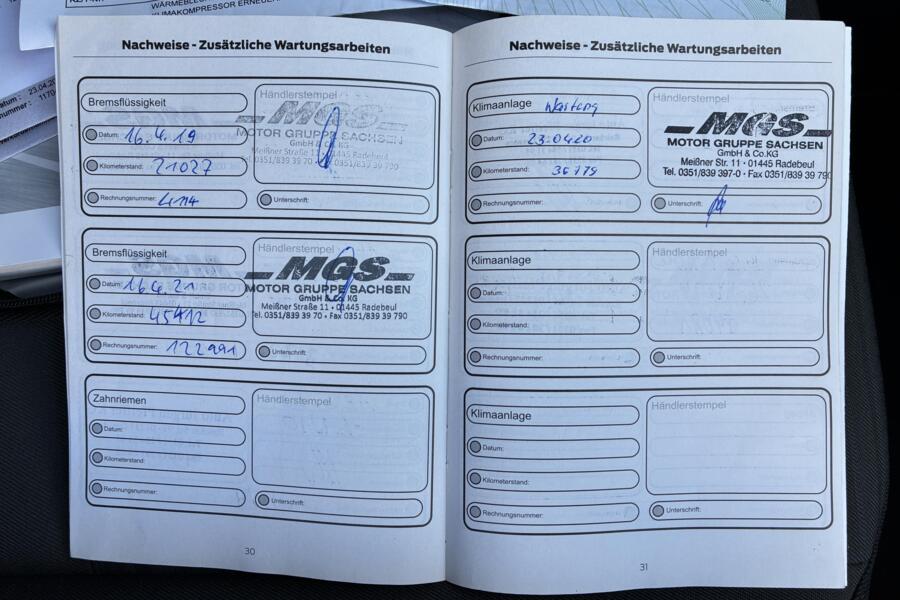 WÄRMEBLEC
KLIMAKOMPRESSOR ERNEUER
23.04.20
ummer: 1170
Nachweise - Zusätzliche Wartungsarbeiten
Bremsflüssigkeit
Datum: 16.4.19
Kilometerstand: 21027
Rechnungsnummer:
Händlerstempel
MGS
MOTOR GRUPPE SACHSEN
GmbH & Co. KG
Meißner Straße 11 • 01445 Radebeul
Tel. 0351/839 39 70 • Fax 0351/839 39 790
Unterschrift:
Bremsflüssigkeit
Datum: 16.4.21
Kilometerstand: 45412
Rechnungsnummer: 122991
Händlerstempel
MGS
MOTOR GRUPPE SACHSEN
GmbH & Co. KG
Meißner Straße 11 • 01445 Radebeul
Tel. 0351/839 39 70 • Fax 0351/839 39 790
Unterschrift:
Zahnriemen
Datum:
Kilometerstand:
Rechnungsnummer:
Händlerstempel
Unterschrift:
30
Nachweise - Zusätzliche Wartungsarbeiten
Klimaanlage Wartung
Datum: 23.0420
Kilometerstand: 36179
Rechnungsnummer:
Händlerstempel
MGS
MOTOR GRUPPE SACHSEN
GmbH & Co.KG
Meißner Str. 11 • 01445 Radebeul
Tel. 0351/839 397-0 • Fax 0351/839 39 790
Unterschrift:
Klimaanlage
Datum:
Kilometerstand:
Rechnungsnummer:
Händlerstempel
Unterschrift:
Klimaanlage
Datum:
Kilometerstand:
Rechnungsnummer:
Händlerstempel
Unterschrift:
31